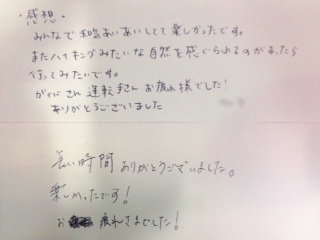 ・感想・
みんなで和気あいあいしてて楽しかったです。
またハイキングみたいな自然を感じられるのがあったら
行ってみたいです。
ガイドさん 運転手さん お疲れ様でした!
ありがとうございました
長い時間ありがとうございました。
楽しかったです!
お疲れさまでした!